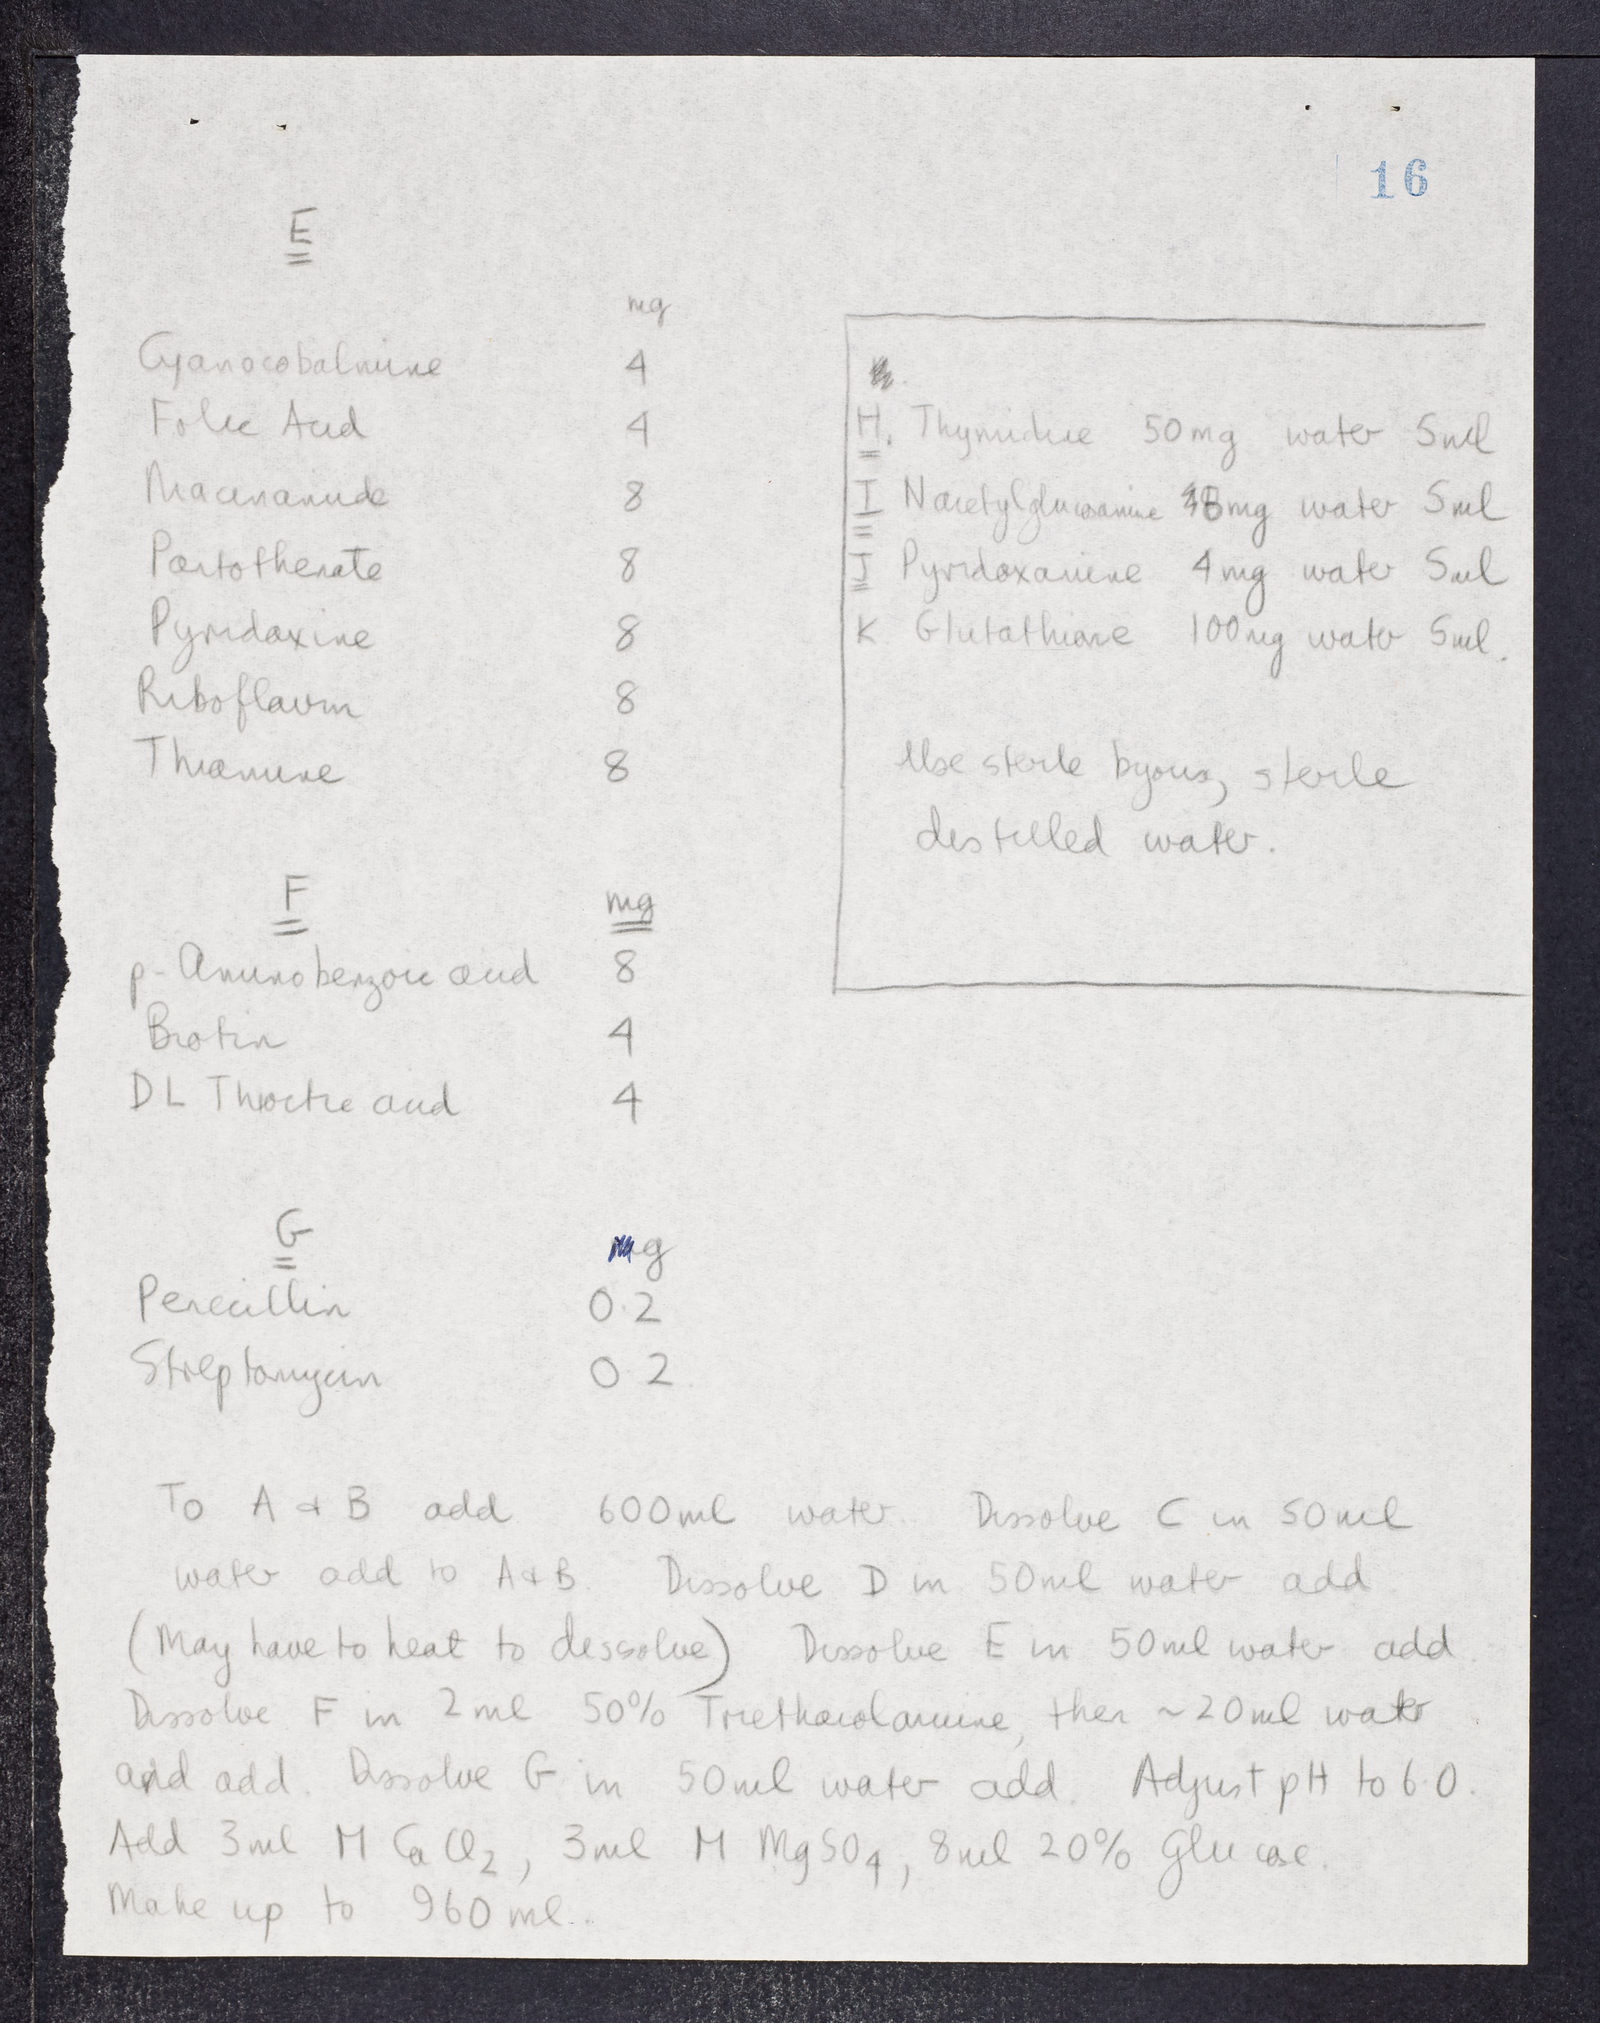 16
E
mg
Cyanocobalmine 4
Folic Acid 4
Niacinamide 8
Pantothenate 8
Pyridoxine 8
Riboflavin 8
Thiamine 8
H. Thymidine 50mg water 5ml
I Nacetylglucosamine mg water 5ml
J Pyridoxamine 4mg water 5ml
K Glutathione 100mg water 5ml.
Use sterile bijoux, sterile
distilled water.
F mg
p-Aminobenzoic acid 8
Biotin 4
DL Thioctic acid 4
G mg
Penicillin 0.2
Streptomycin 0.2
To A & B add 600ml water. Dissolve C in 50ml
water add to A & B. Dissolve D in 50ml water add
(May have to heat to dissolve) Dissolve E in 50ml water add.
Dissolve F in 2ml 50% Triethanolamine, then ~20ml water
and add. Dissolve G in 50ml water add. Adjust pH to 6.0.
Add 3ml M CaCl2, 3ml M MgSO4, 8ml 20% Glucose.
Make up to 960ml.